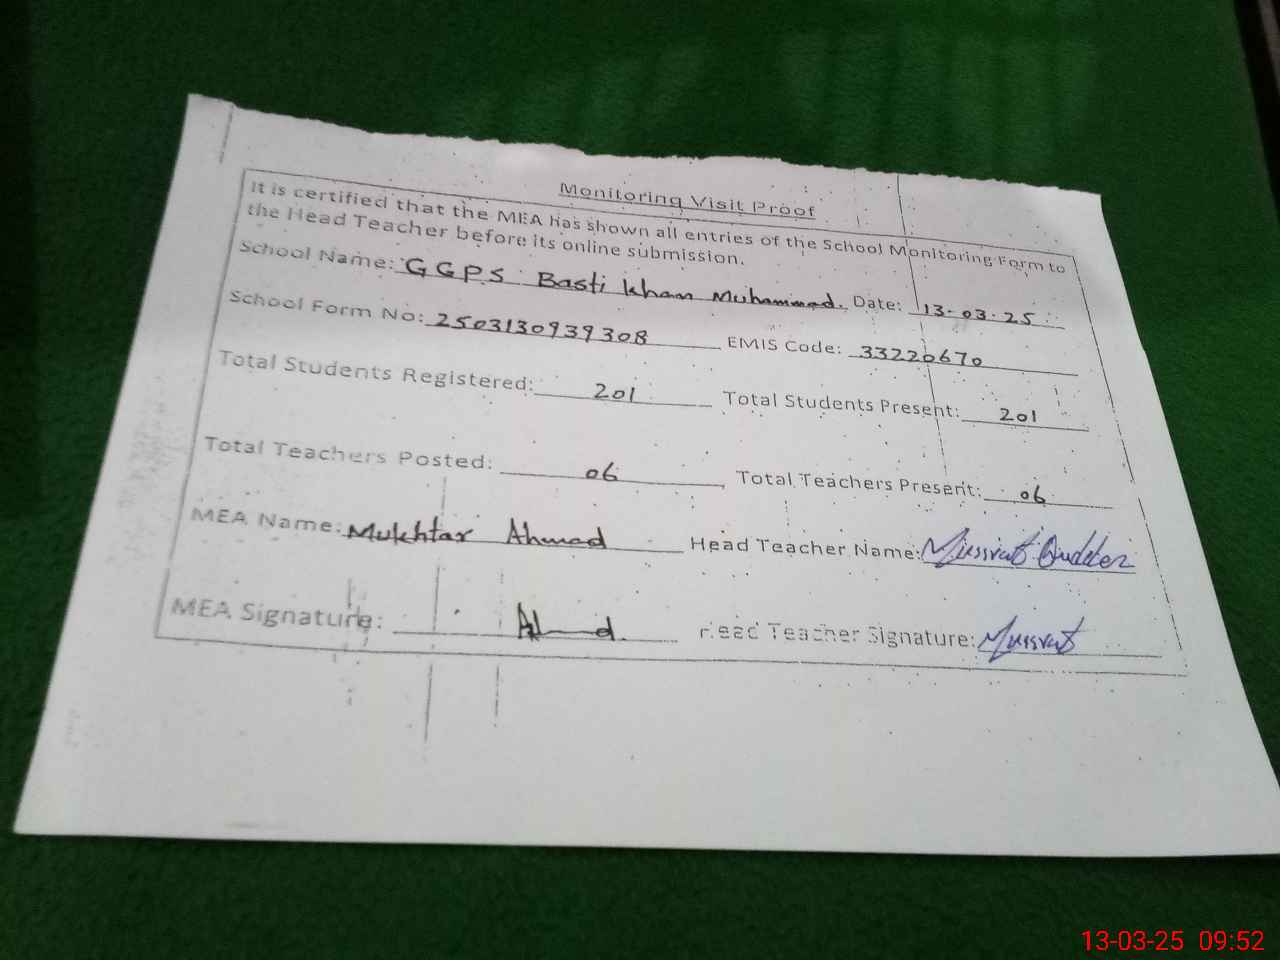 Monitoring Visit Proof
It is certified that the MEA has shown all entries of the School Monitoring Form to
the Head Teacher before its online submission.
School Name: GGPS Basti Khan Muhammad. Date: 13-03-25
School Form No: 2503130939308 EMIS Code: 33220670
Total Students Registered: 201 Total Students Present: 201
Total Teachers Posted: 06 Total Teachers Present: 06
MEA Name: Mukhtar Ahmad Head Teacher Name: Mussrat
MEA Signature: Ahmd Head Teacher Signature: Mussrat
13-03-25 09:52